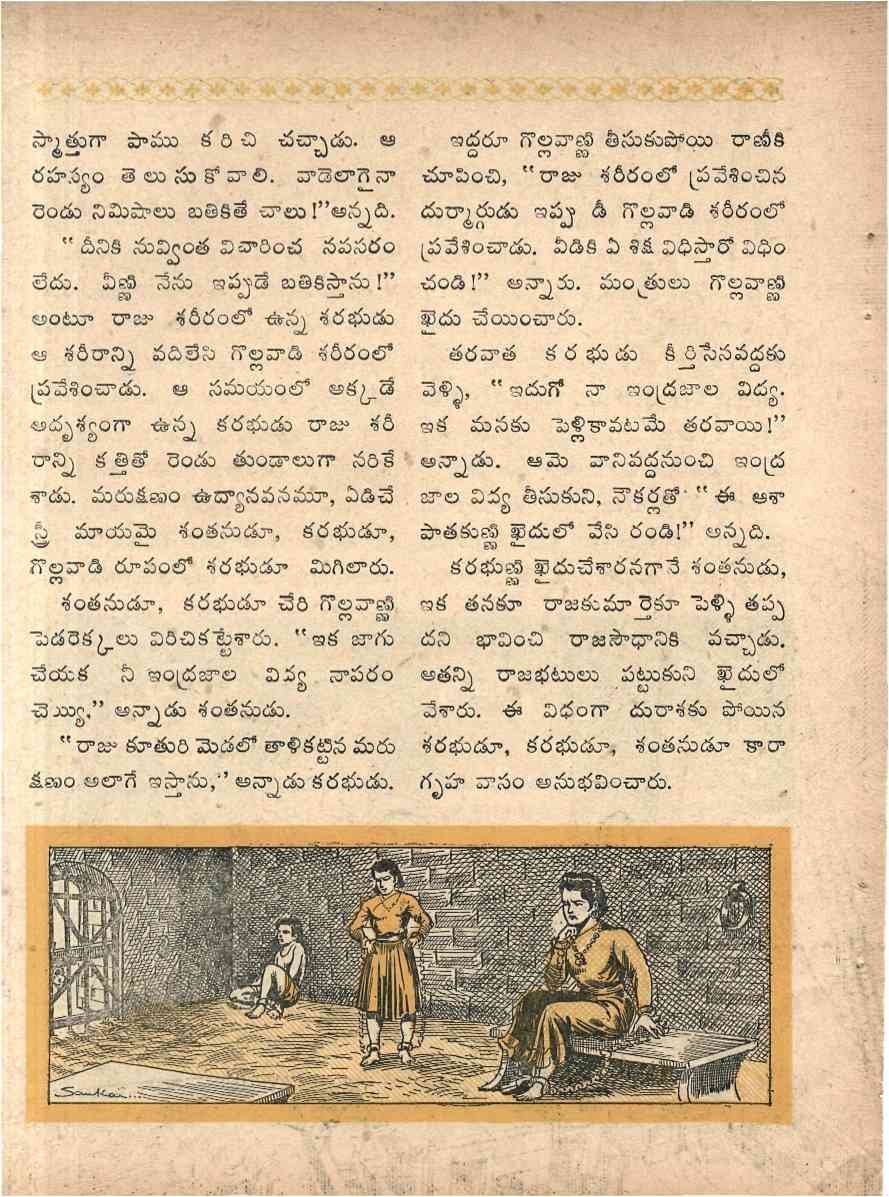 స్మాత్తుగా పాము కరిచి చచ్చాడు. ఆ
రహస్యం తెలుసుకోవాలి. వాడెలాగైనా
రెండు నిమిషాలు బతికితే చాలు!" అన్నది.
" దీనికి నువ్వింత విచారించ నవసరం
లేదు. వీణ్ణి నేను ఇప్పుడే బతికిస్తాను!"
అంటూ రాజు శరీరంలో ఉన్న శరభుడు
ఆ శరీరాన్ని వదిలేసి గొల్లవాడి శరీరంలో
ప్రవేశించాడు. ఆ సమయంలో అక్కడే
అదృశ్యంగా ఉన్న కరభుడు రాజు శరీ
రాన్ని కత్తితో రెండు తుండాలుగా నరికే
శాడు. మరుక్షణం ఉద్యానవనమూ, ఏడిచే
స్త్రీ మాయమై శంతనుడూ, కరభుడూ,
గొల్లవాడి రూపంలో శరభుడూ మిగిలారు.
శంతనుడూ, కరభుడూ చేరి గొల్లవాణ్ణి
పెడరెక్కలు విరిచికట్టేశారు. "ఇక జాగు
చేయక నీ ఇంద్రజాల విద్య నాపరం
చెయ్యి," అన్నాడు శంతనుడు.
"రాజు కూతురి మెడలో తాళికట్టిన మరు
క్షణం అలాగే ఇస్తాను," అన్నాడు కరభుడు.
ఇద్దరూ గొల్లవాణ్ణి తీసుకుపోయి రాణీకి
చూపించి, "రాజు శరీరంలో ప్రవేశించిన
దుర్మార్గుడు ఇప్పు డీ గొల్లవాడి శరీరంలో
ప్రవేశించాడు. వీడికి ఏ శిక్ష విధిస్తారో విధిం
చండి!" అన్నారు. మంత్రులు గొల్లవాణ్ణి
ఖైదు చేయించారు.
తరవాత కరభుడు కీర్తిసేనవద్దకు
వెళ్ళి, "ఇదుగో నా ఇంద్రజాల విద్య.
ఇక మనకు పెళ్లికావటమే తరవాయి!"
అన్నాడు. ఆమె వానివద్దనుంచి ఇంద్ర
జాల విద్య తీసుకుని, నౌకర్లతో "ఈ ఆశా
పాతకుణ్ణి ఖైదులో వేసి రండి!" అన్నది.
కరభుణ్ణి ఖైదుచేశారనగానే శంతనుడు,
ఇక తనకూ రాజకుమార్తెకూ పెళ్ళి తప్ప
దని భావించి రాజసౌధానికి వచ్చాడు.
అతన్ని రాజభటులు పట్టుకుని ఖైదులో
వేశారు. ఈ విధంగా దురాశకు పోయిన
శరభుడూ, కరభుడూ, శంతనుడూ కారా
గృహ వాసం అనుభవించారు.
Sankar...